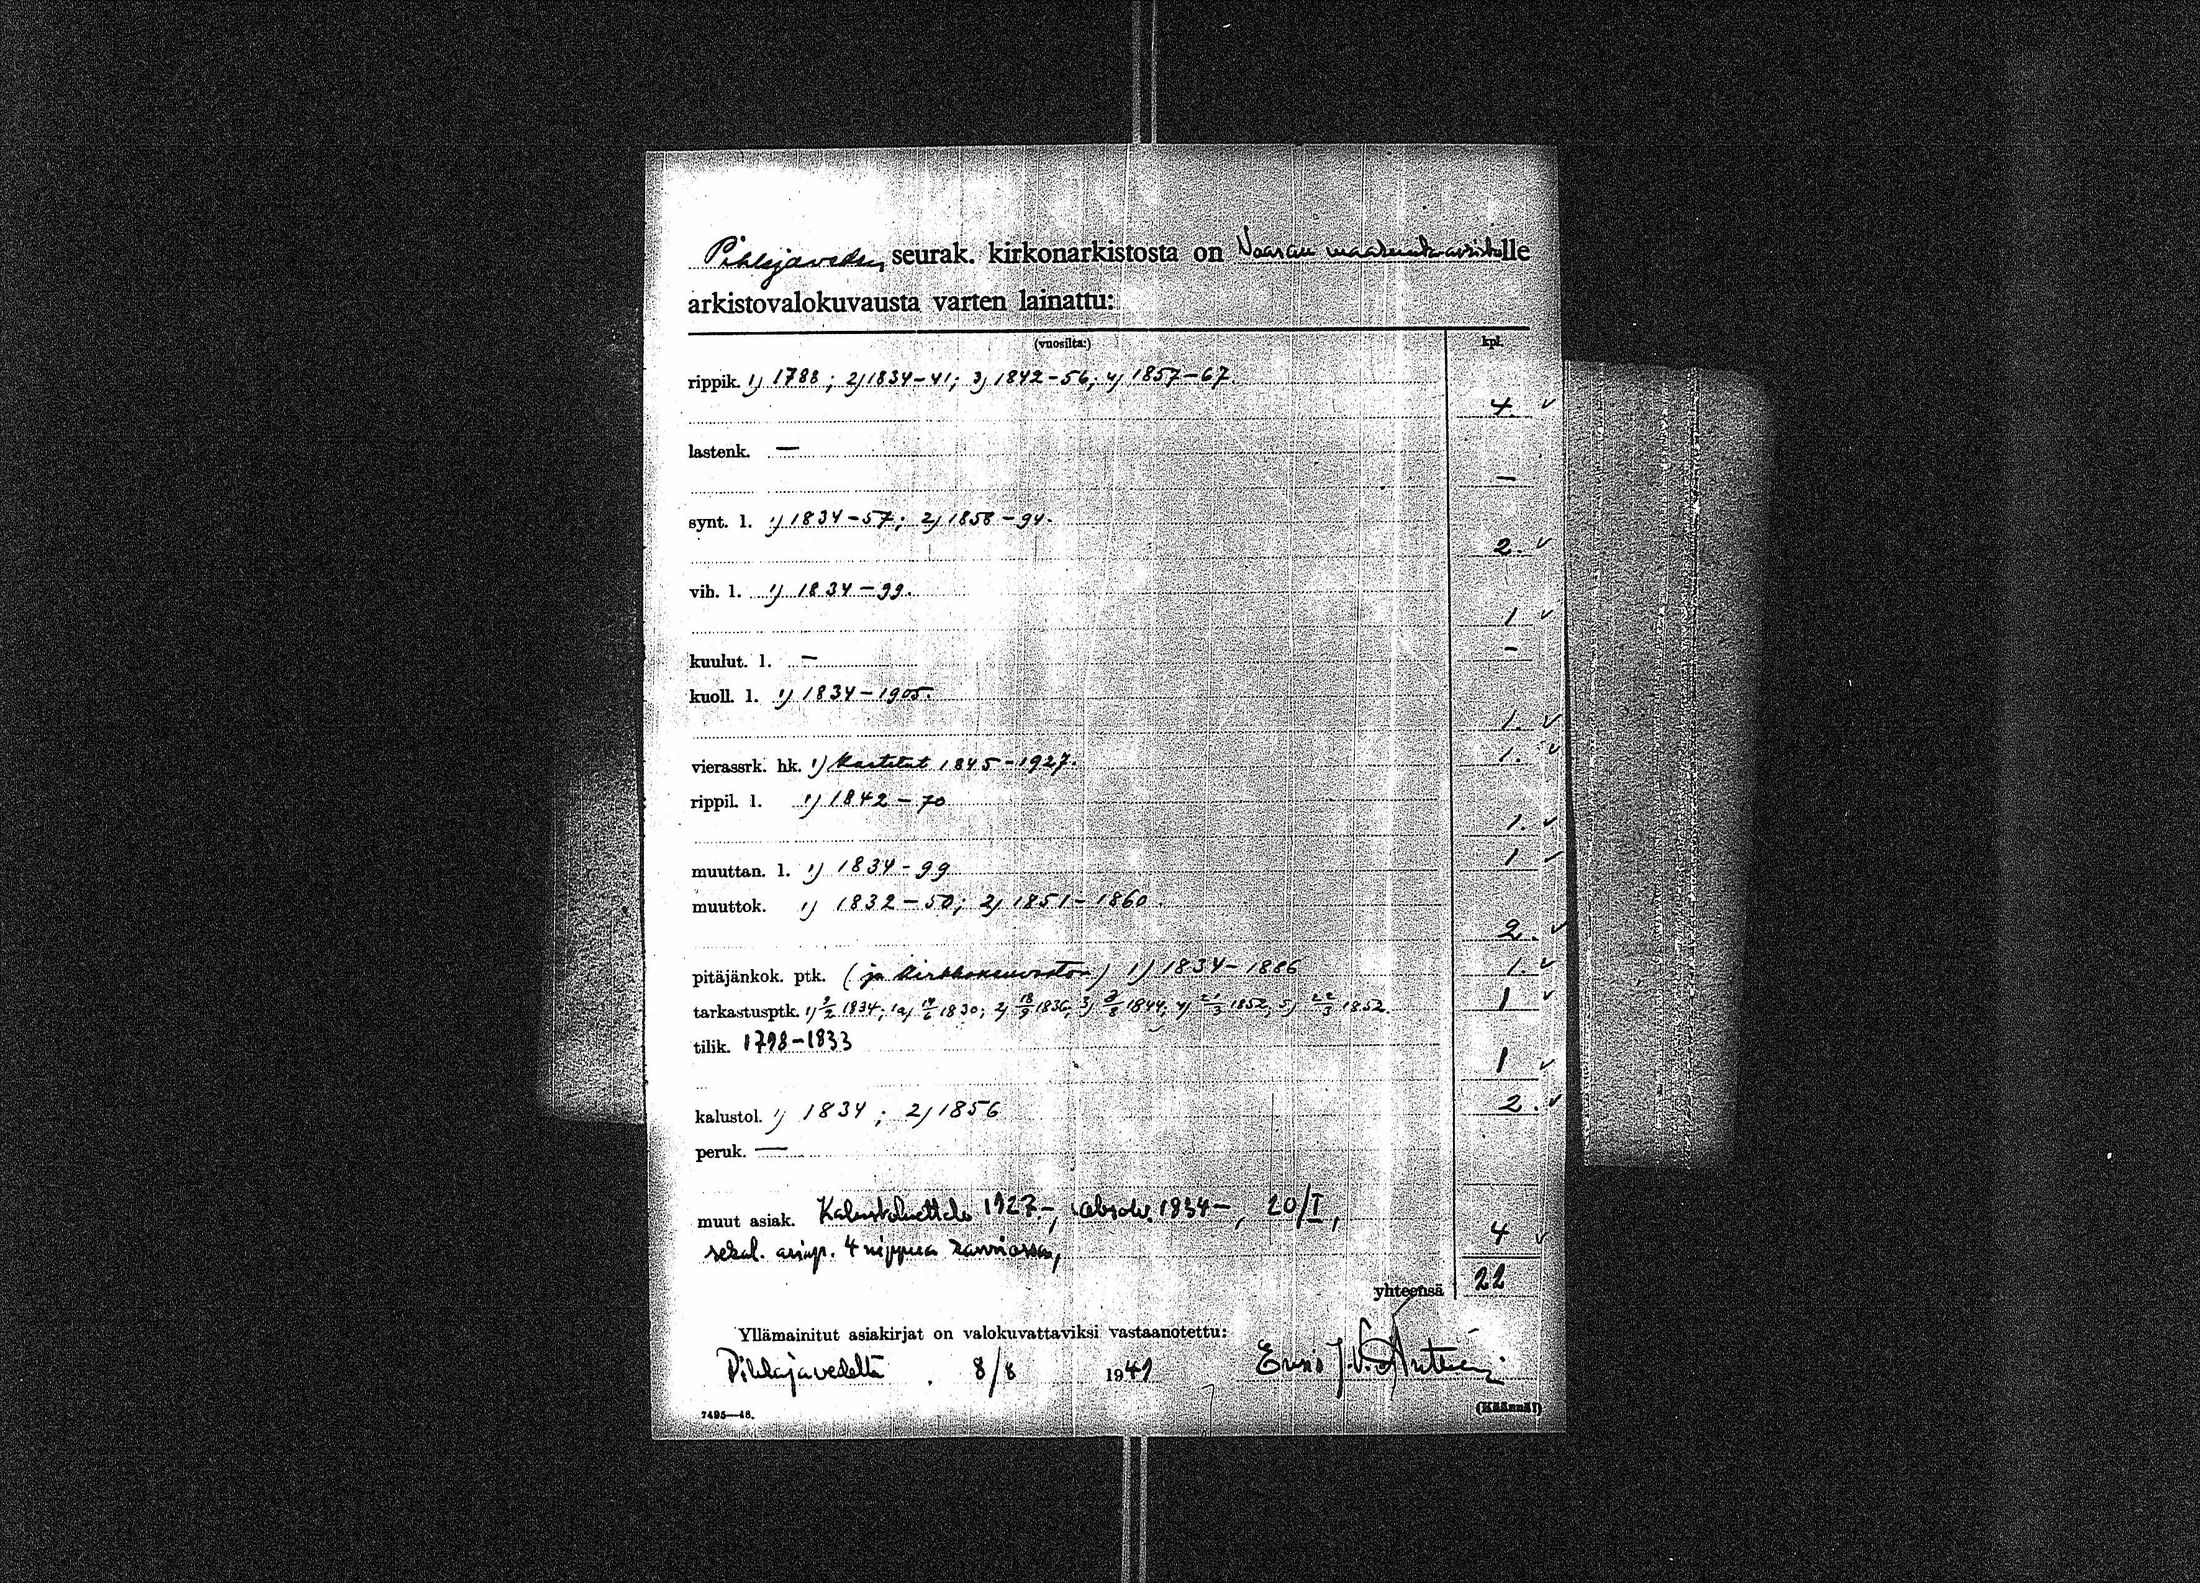 Pihlajaveden seurak. kirkonarkistosta on Vaasan maakunta-arkistolle
arkistovalokuvausta varten lainattu:
(vuosilta:) kpl.
rippik. 1) 1788; 2) 1834-41; 3) 1842-56; 4) 1857-67.
4. ✓
lastenk. —
—
synt. l. 1) 1834-57; 2) 1858-94.
2. ✓
vih. l. 1) 1834-99.
1 ✓
kuulut. l. — -
kuoll. l. 1) 1834-1905.
1. ✓
vierassrk. hk. 1) Kortitut 1845-1927. 1. ✓
rippil. l. 1) 1842-70
1. ✓
muuttan. l. 1) 1834-99 1 ✓
muuttok. 1) 1832-50; 2) 1851-1860.
2. ✓
pitäjänkok. ptk. (ja kirkkoneuvoston) 1) 1834-1886 1. ✓
tarkastusptk. 1) 1834; 1a) 1830; 2) 1836; 3) 1844; 4) 1852; 5) 1852. 1 ✓
tilik. 1798-1833
1 ✓
kalustol. 1) 1834; 2) 1856 2. ✓
peruk. —
muut asiak. Kalustoluettelo 1927-, 1834-, 20/I,
sekal. asiap. 4 nippua 4 ✓
yhteensä 22
Yllämainitut asiakirjat on valokuvattaviksi vastaanotettu:
Pihlajavedeltä. 8/8 1949
7495—48. (Käännä!)